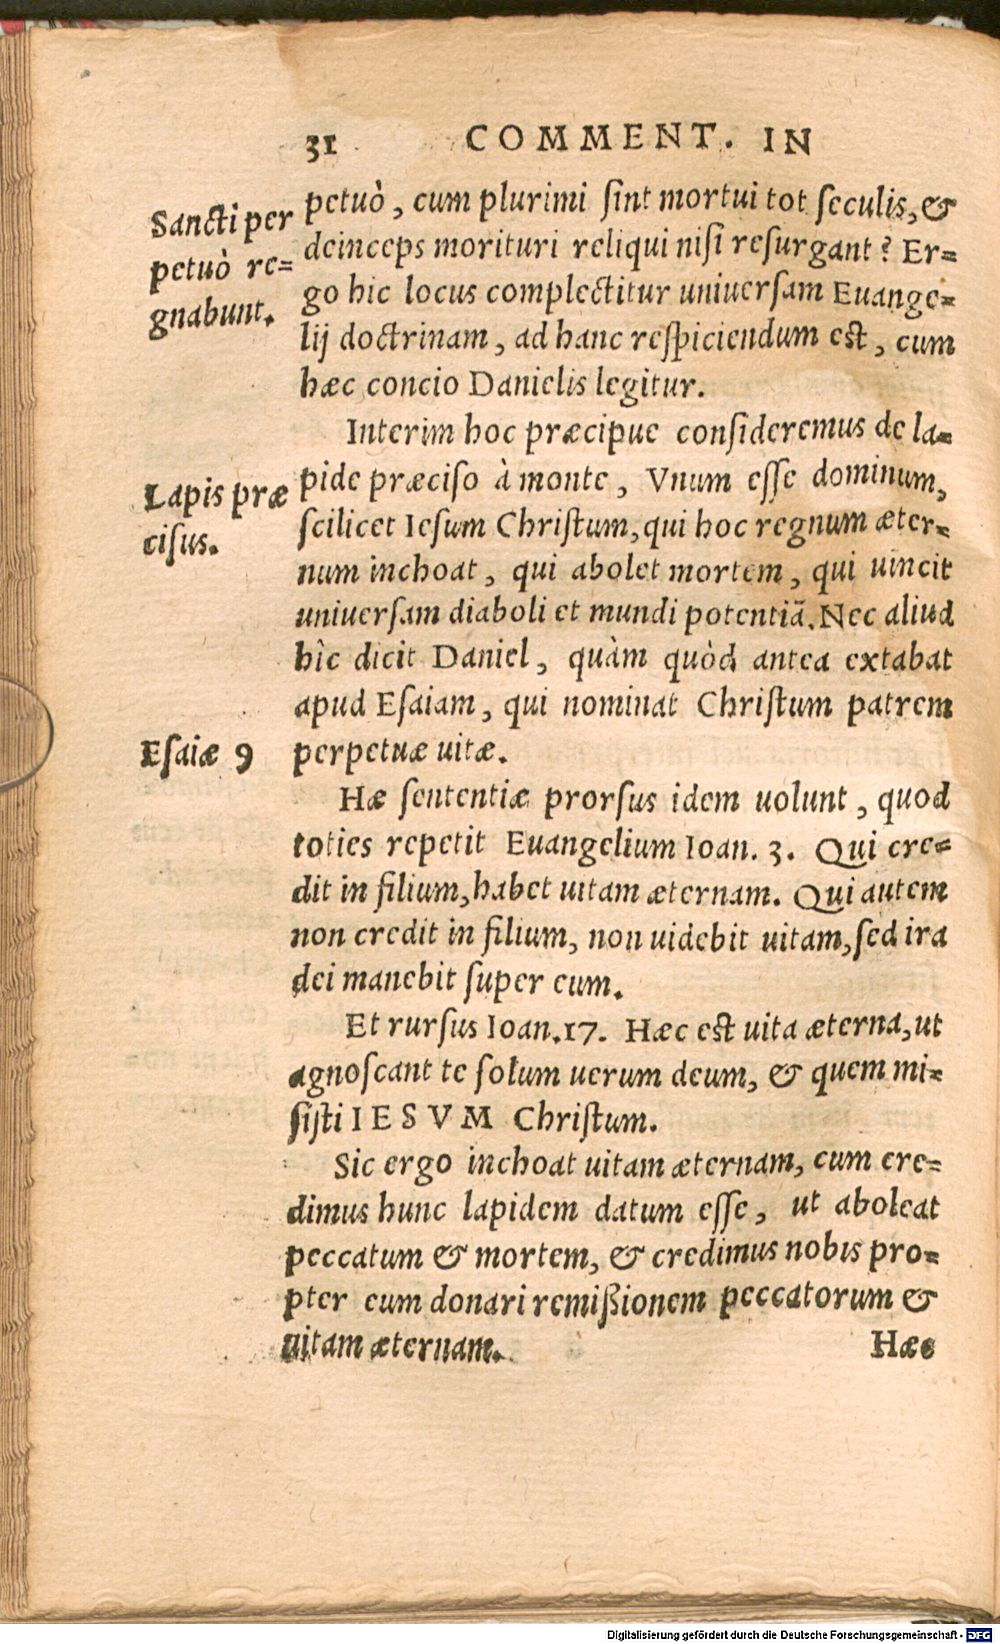 31 COMMENT. IN
Sancti per
petuò re=
gnabunt.
petuò, cum plurimi ſint mortui tot ſeculis, &
deinceps morituri reliqui niſi reſurgant? Er=
go hic locus complectitur uniuerſam Euange=
lij doctrinam, ad hanc reſpiciendum est, cum
hæc concio Danielis legitur.
Interim hoc præcipue conſideremus de la=
Lapis præ
ciſus.
pide præciſo à monte, Vnum eſſe dominum,
ſcilicet Ieſum Chriſtum, qui hoc regnum æter=
num inchoat, qui abolet mortem, qui uincit
uniuerſam diaboli et mundi potentiã. Nec aliud
hìc dicit Daniel, quàm quòd antea extabat
apud Eſaiam, qui nominat Chriſtum patrem
Eſaiæ 9
perpetuæ uitæ.
Hæ ſententiæ prorſus idem uolunt, quod
toties repetit Euangelium Ioan. 3. Qui cre=
dit in filium, habet uitam æternam. Qui autem
non credit in filium, non uidebit uitam, ſed ira
dei manebit ſuper eum.
Et rurſus Ioan. 17. Hæc est uita æterna, ut
agnoſcant te ſolum uerum deum, & quem mi=
ſiſti IESVM Chriſtum.
Sic ergo inchoat uitam æternam, cum cre=
dimus hunc lapidem datum eſſe, ut aboleat
peccatum & mortem, & credimus nobis pro=
pter eum donari remißionem peccatorum &
uitam æternam.
Hæc
Digitalisierung gefördert durch die Deutsche Forschungsgemeinschaft - DFG